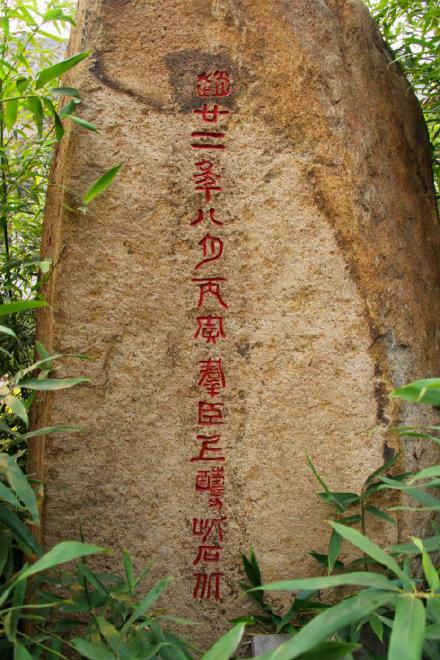 趙廿二年八月丙寅羣臣上醻此石北